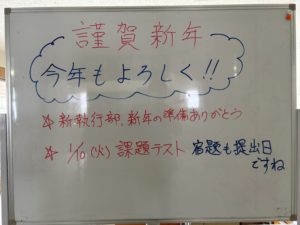 謹賀新年
今年もよろしく!!
☆新執行部、新年の準備ありがとう
☆1/10(火)課題テスト 宿題も提出日
ですね